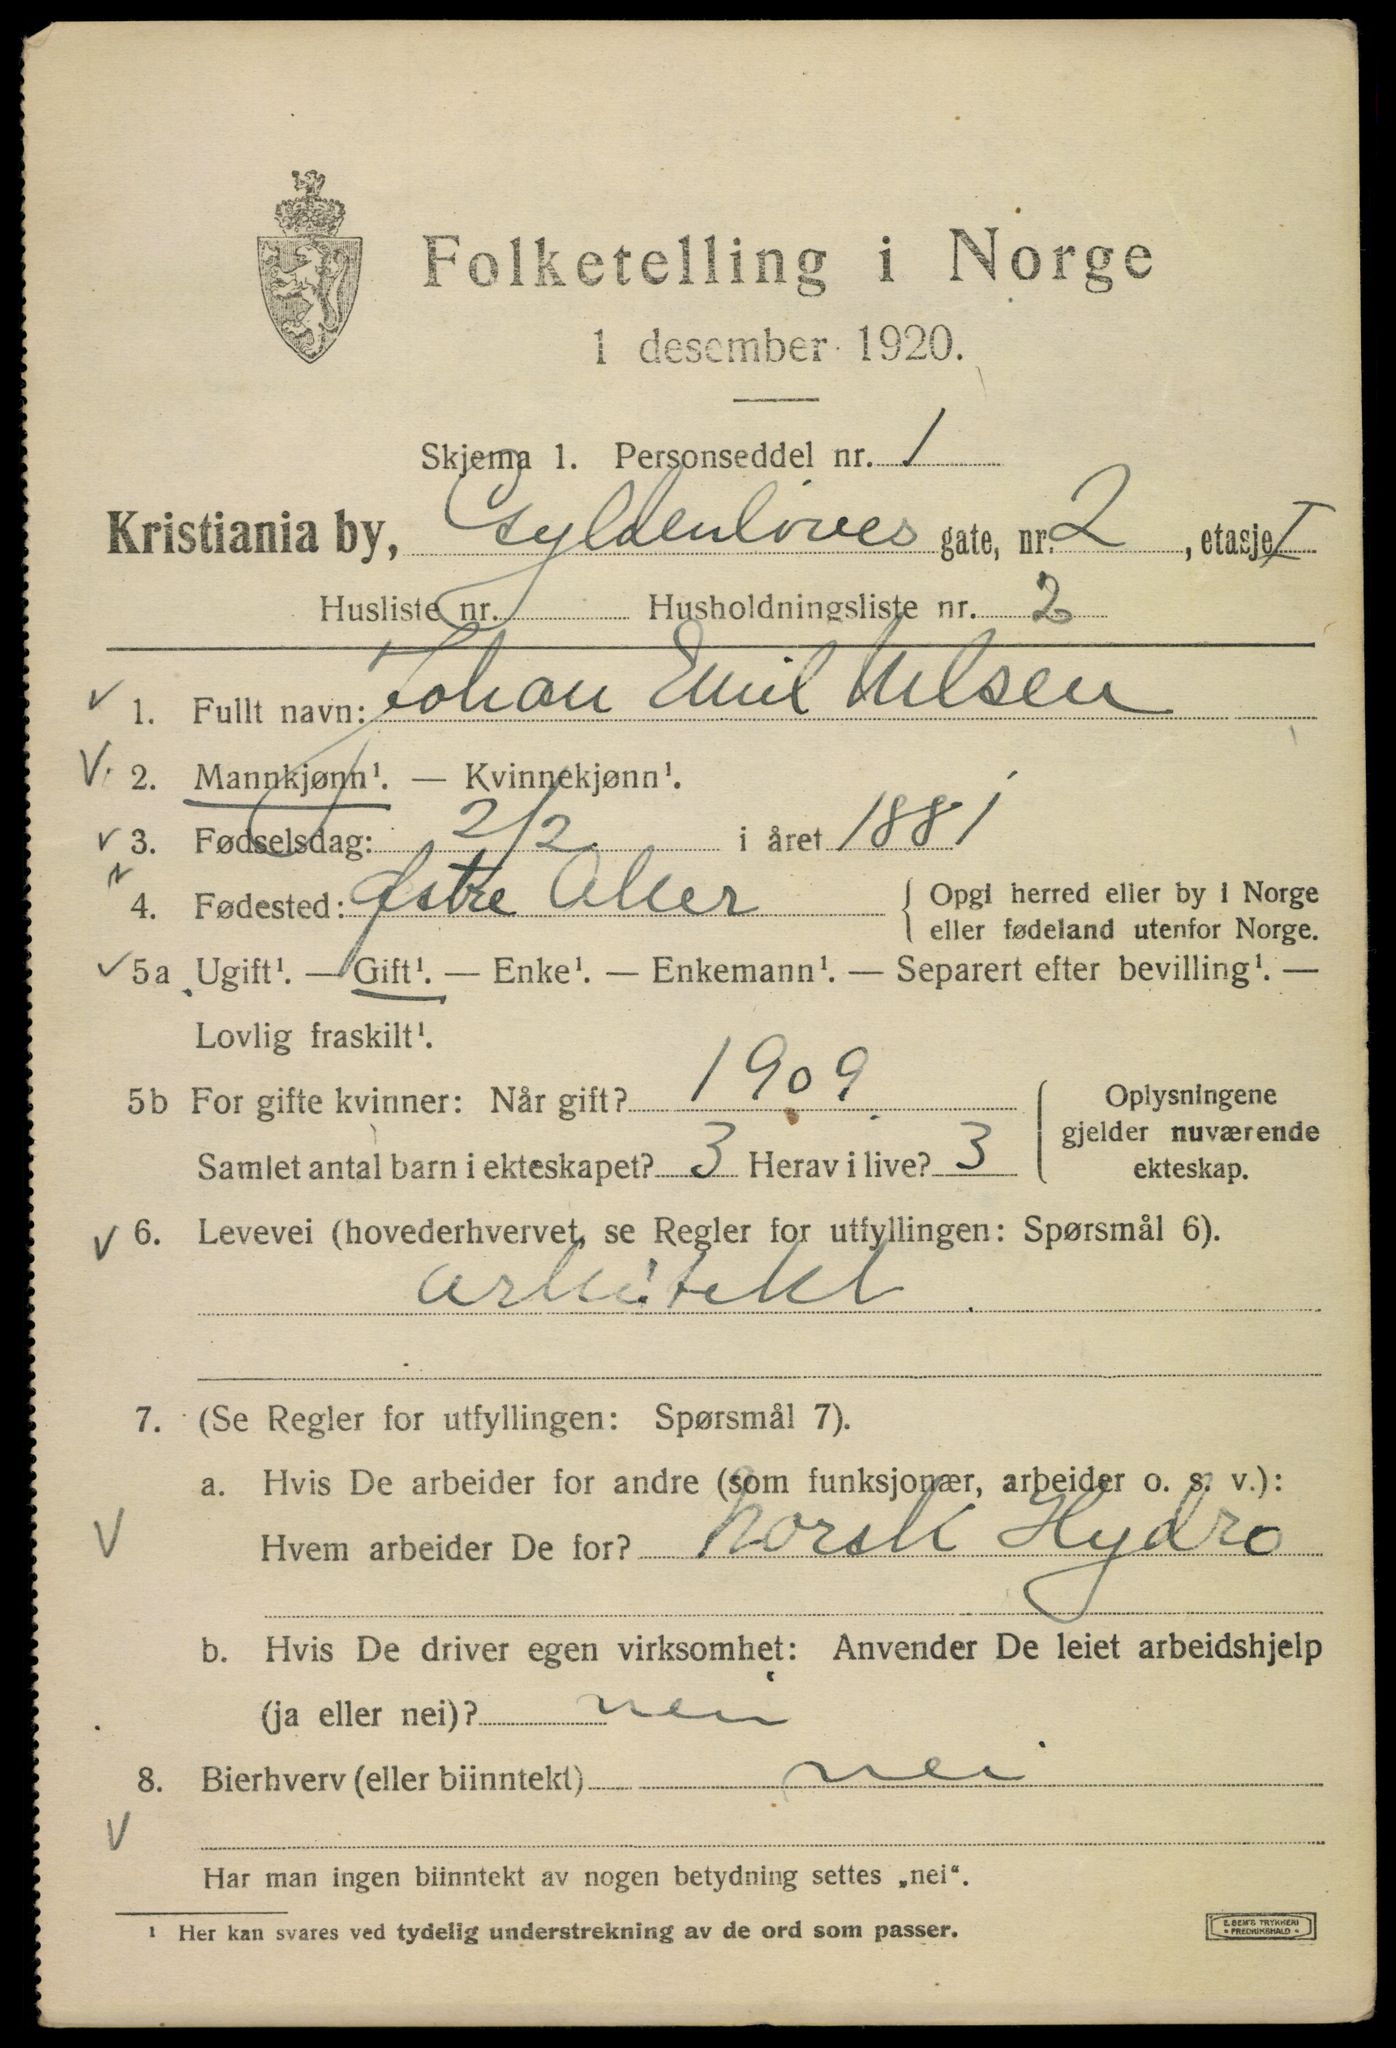 Folketelling i Norge
1 desember 1920.
Skjema 1. Personseddel nr. 1
Kristiania by, Gyldenløves gate, nr. 2, etasje I
Husliste nr. Husholdningsliste nr. 2
1. Fullt navn: Johan Emil Nilsen
2. Mannkjønn¹. — Kvinnekjønn¹.
3. Fødselsdag: 2/2 i året 1881
4. Fødested: Østre Aker { Opgi herred eller by i Norge
eller fødeland utenfor Norge.
5a Ugift¹. — Gift¹. — Enke¹. — Enkemann¹. — Separert efter bevilling¹. —
Lovlig fraskilt¹.
5b For gifte kvinner: Når gift? 1909
Samlet antal barn i ekteskapet? 3 Herav i live? 3
Oplysningene
gjelder nuværende
ekteskap.
6. Levevei (hovederhvervet, se Regler for utfyllingen: Spørsmål 6).
arkitekt
7. (Se Regler for utfyllingen: Spørsmål 7).
a. Hvis De arbeider for andre (som funksjonær, arbeider o. s. v.):
Hvem arbeider De for? Norsk Hydro
b. Hvis De driver egen virksomhet: Anvender De leiet arbeidshjelp
(ja eller nei)? nei
8. Bierhverv (eller biinntekt) nei
Har man ingen biinntekt av nogen betydning settes „nei“.
¹ Her kan svares ved tydelig understrekning av de ord som passer.
E. SEM'S TRYKKERI
FREDRIKSHALD